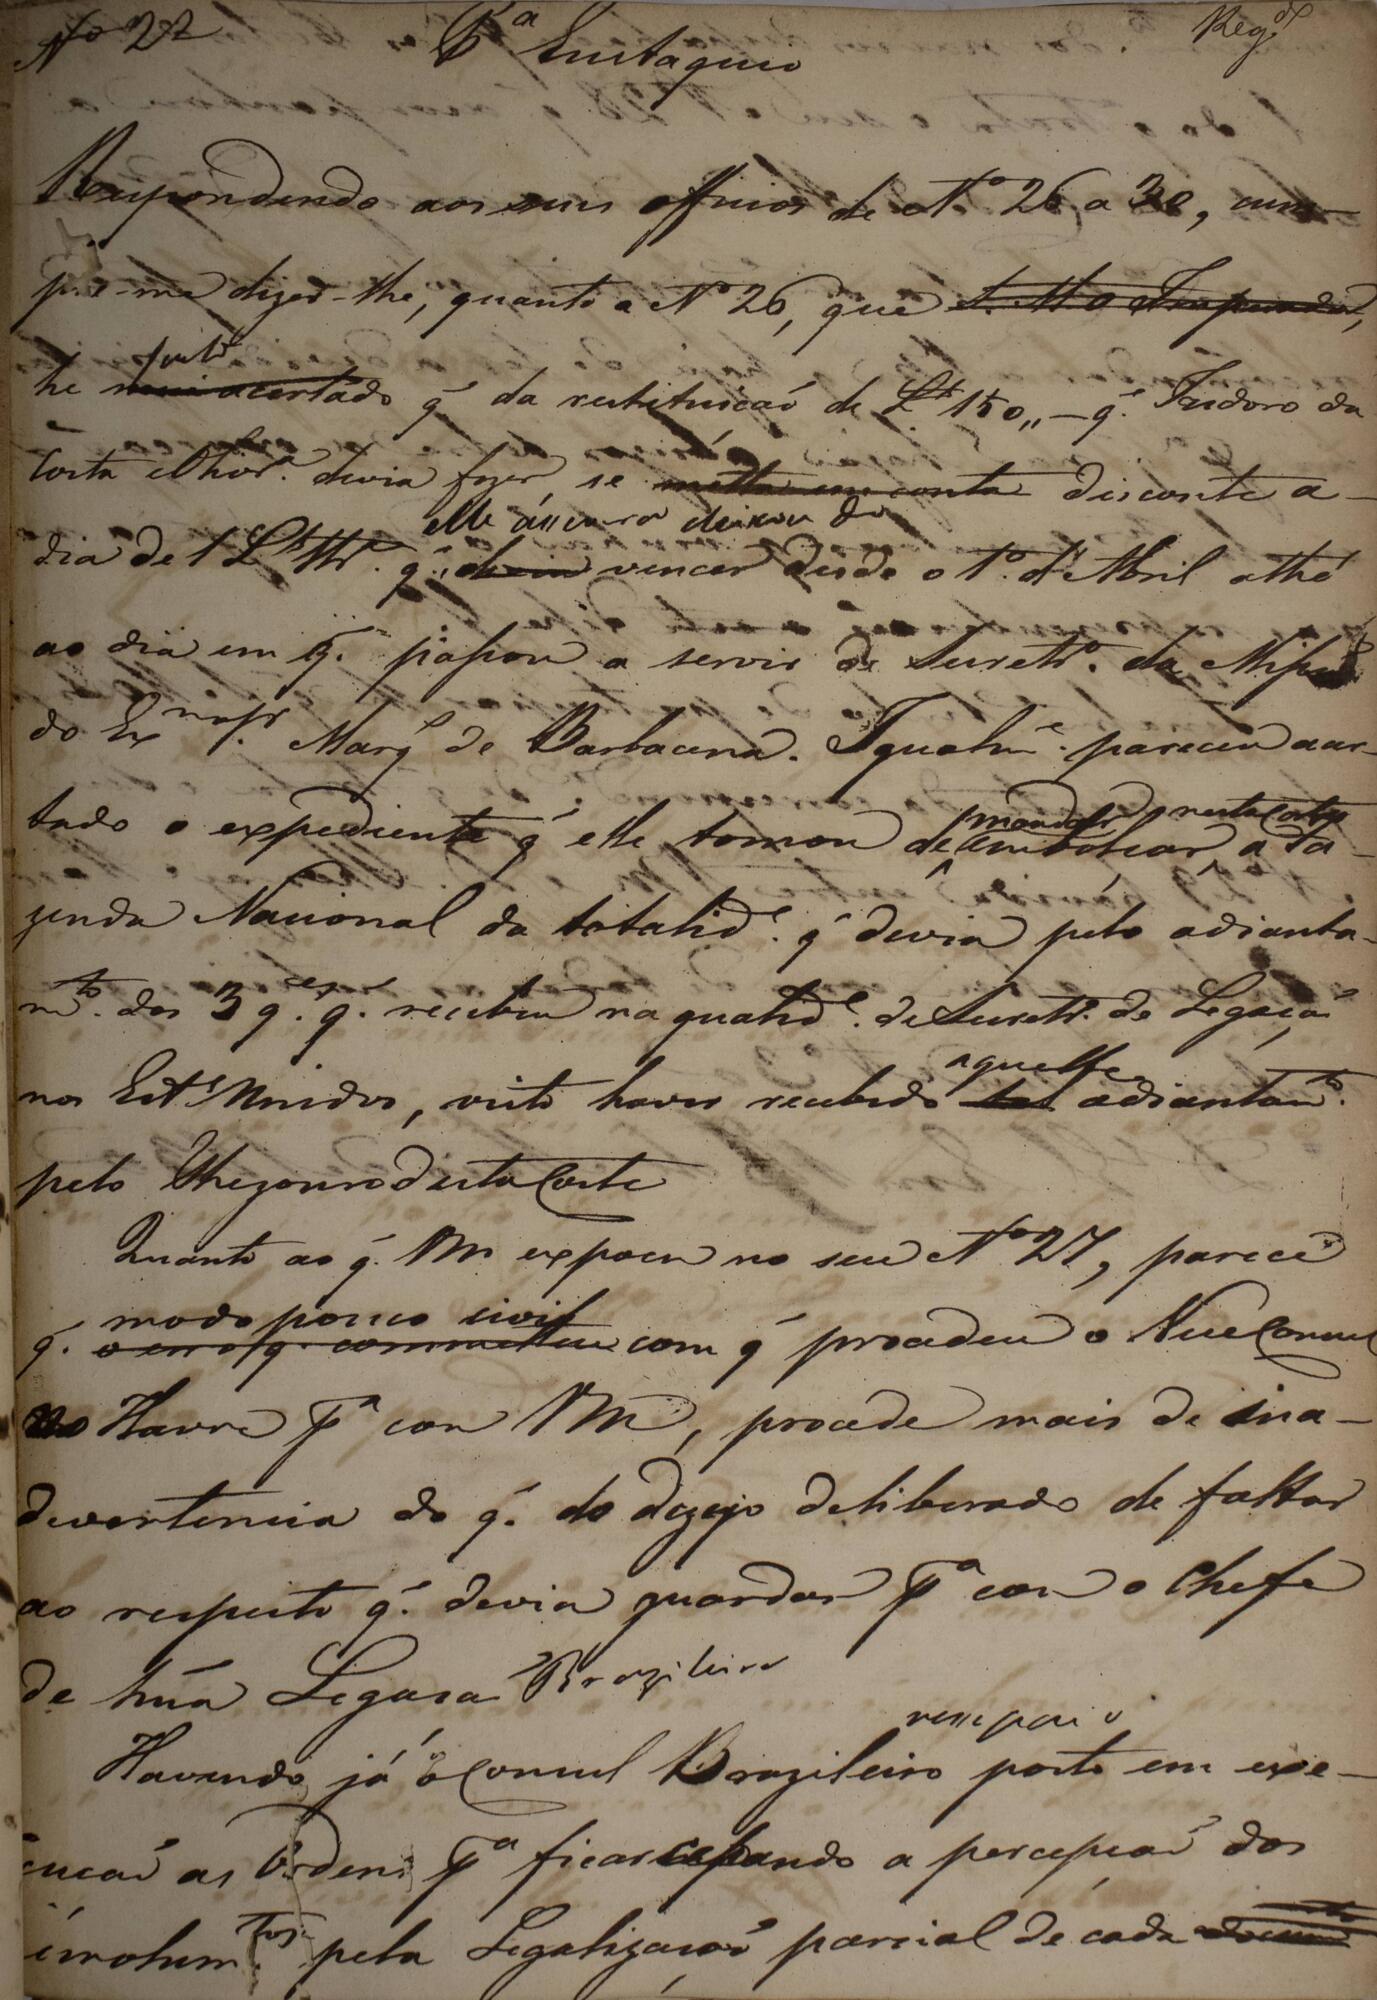 Nº 22 Pª Eustaquio Regdo
Respondendo aos seus officios de Nº 26 a 30, cum-
pre-me dizer-lhe, quanto a Nº 26, que
justo
he mui acertado q̃ da restituiçaõ de L.st 150,,- q̃ Izidoro da
Costa e Olivrª devia fazer, se metta em conta disconte a-
elle ássima deixou de
dia de 1 L.st q̃ vencer desde o 1º d'Abril athé
ao dia em q̃ passou a servir de Secretrº da Missaõ
do Exmo Sr Marqs de Barbacena. Igualme pareceu acer-
mandar nesta Corte
tado o expediente q̃ elle tomou de embolçar a Fa-
zenda Nacional da totalide q̃ devia pelo adianta-
mto dos 3 qes q̃ recebeu na qualide de Secretrº de Legaçaõ
aquelle
nos Ests Unidos, visto haver recebido tal adiantamto
pelo Thezouro desta Corte
Quanto ao q̃ Vm expoem no seu Nº 27, parece
modo pouco civil
q̃ o erro q̃ commetteu com q̃ procedeu o Vice Consul
no Havre pª com Vm, procede mais de ina-
dvertencia do q̃ do dezejo deliberado de faltar
ao respeito q̃ devia guardar pª com o Chefe
de húa Legaçaõ Brazileira
nesse paiz
Havendo já o Consul Brazileiro posto em exe-
cuçaõ as Ordens pª ficar cessando a percepçaõ dos
emolumtos pela Legalizaçaõ parcial de cada